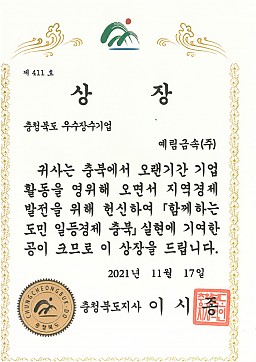 제 411 호
상 장
충청북도 우수장수기업
예림금속(주)
귀사는 충북에서 오랜기간 기업
활동을 영위해 오면서 지역경제
발전을 위해 헌신하여 「함께하는
도민 일등경제 충북」실현에 기여한
공이 크므로 이 상장을 드립니다.
2021년 11월 17일
충청북도지사 이 시 종
CHUNGCHEONGBUK-DO
충청북도